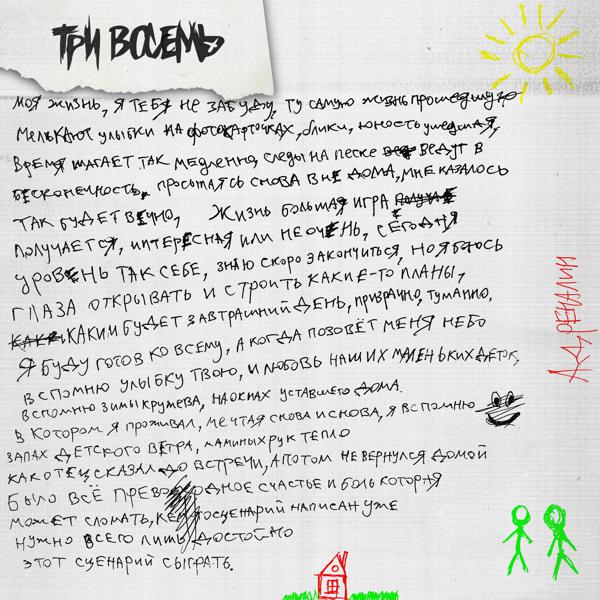 ТРИ ВОСЕМЬ
МОЯ ЖИЗНЬ, Я ТЕБЯ НЕ ЗАБУДУ, ТУ САМУЮ ЖИЗНЬ ПРОШЕДШУЮ
МЕЛЬКАЮТ УЛЫБКИ НА ФОТОКАРТОЧКАХ, БЛИКИ, ЮНОСТЬ УШЕДШАЯ,
ВРЕМЯ ШАГАЕТ ТАК МЕДЛЕННО, СЛЕДЫ НА ПЕСКЕ ВЕДУТ В
БЕСКОНЕЧНОСТЬ, ПРОСЫПАЯСЬ СНОВА ВНЕ ДОМА, МНЕ КАЗАЛОСЬ
ТАК БУДЕТ ВЕЧНО, ЖИЗНЬ БОЛЬШАЯ ИГРА
ПОЛУЧАЕТСЯ, ИНТЕРЕСНАЯ ИЛИ НЕ ОЧЕНЬ, СЕГОДНЯ
УРОВЕНЬ ТАК СЕБЕ, ЗНАЮ СКОРО ЗАКОНЧИТЬСЯ, НО Я БОЮСЬ
ГЛАЗА ОТКРЫВАТЬ И СТРОИТЬ КАКИЕ-ТО ПЛАНЫ,
КАКИМ БУДЕТ ЗАВТРАШНИЙ ДЕНЬ, ПРИЗРАЧНО, ТУМАННО,
Я БУДУ ГОТОВ КО ВСЕМУ, А КОГДА ПОЗОВЁТ МЕНЯ НЕБО
ВСПОМНЮ УЛЫБКУ ТВОЮ, И ЛЮБОВЬ НАШИХ МАЛЕНЬКИХ ДЕТОК,
ВСПОМНЮ ЗИМЫ КРУЖЕВА, НА ОКНАХ УСТАВШЕГО ДОМА.
В КОТОРОМ Я ПРОЖИВАЛ, МЕЧТАЯ СНОВА И СНОВА, Я ВСПОМНЮ
ЗАПАХ ДЕТСКОГО ВЕТРА, МАМИНЫХ РУК ТЕПЛО
КАК ОТЕЦ СКАЗАЛ ДО ВСТРЕЧИ, А ПОТОМ НЕ ВЕРНУЛСЯ ДОМОЙ
БЫЛО ВСЁ ПРЕВОСХОДНОЕ СЧАСТЬЕ И БОЛЬ КОТОРАЯ
МОЖЕТ СЛОМАТЬ, КЕМ ТО СЦЕНАРИЙ НАПИСАН УЖЕ
НУЖНО ВСЕГО ЛИШЬ ДОСТОЙНО
ЭТОТ СЦЕНАРИЙ СЫГРАТЬ.
АДРЕНАЛИН